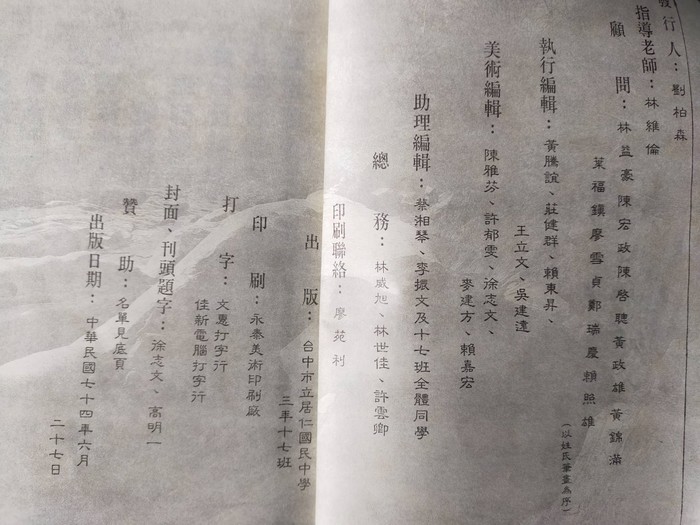 發行人：劉柏森
指導老師：林維倫
顧問：林益豪陳宏政陳啓聰黃政雄黃錦滿
葉福鎮廖雪貞鄭瑞慶賴照雄
（以姓氏筆畫為序）
執行編輯：黃騰誼、莊健群、賴東昇、
王立文、吳建達
美術編輯：陳雅芬、許郁雯、徐志文、
麥建方、賴嘉宏
助理編輯：蔡湘琴、李振文及十七班全體同學
總務：林威旭、林世佳、許雲卿
印刷聯絡：廖苑利
出版：台中市立居仁國民中學
三年十七班
印刷：永泰美術印刷廠
打字：文惠打字行
佳新電腦打字行
封面、刊頭題字：徐志文、高明一
贊助：名單見底頁
出版日期：中華民國七十四年六月
二十七日